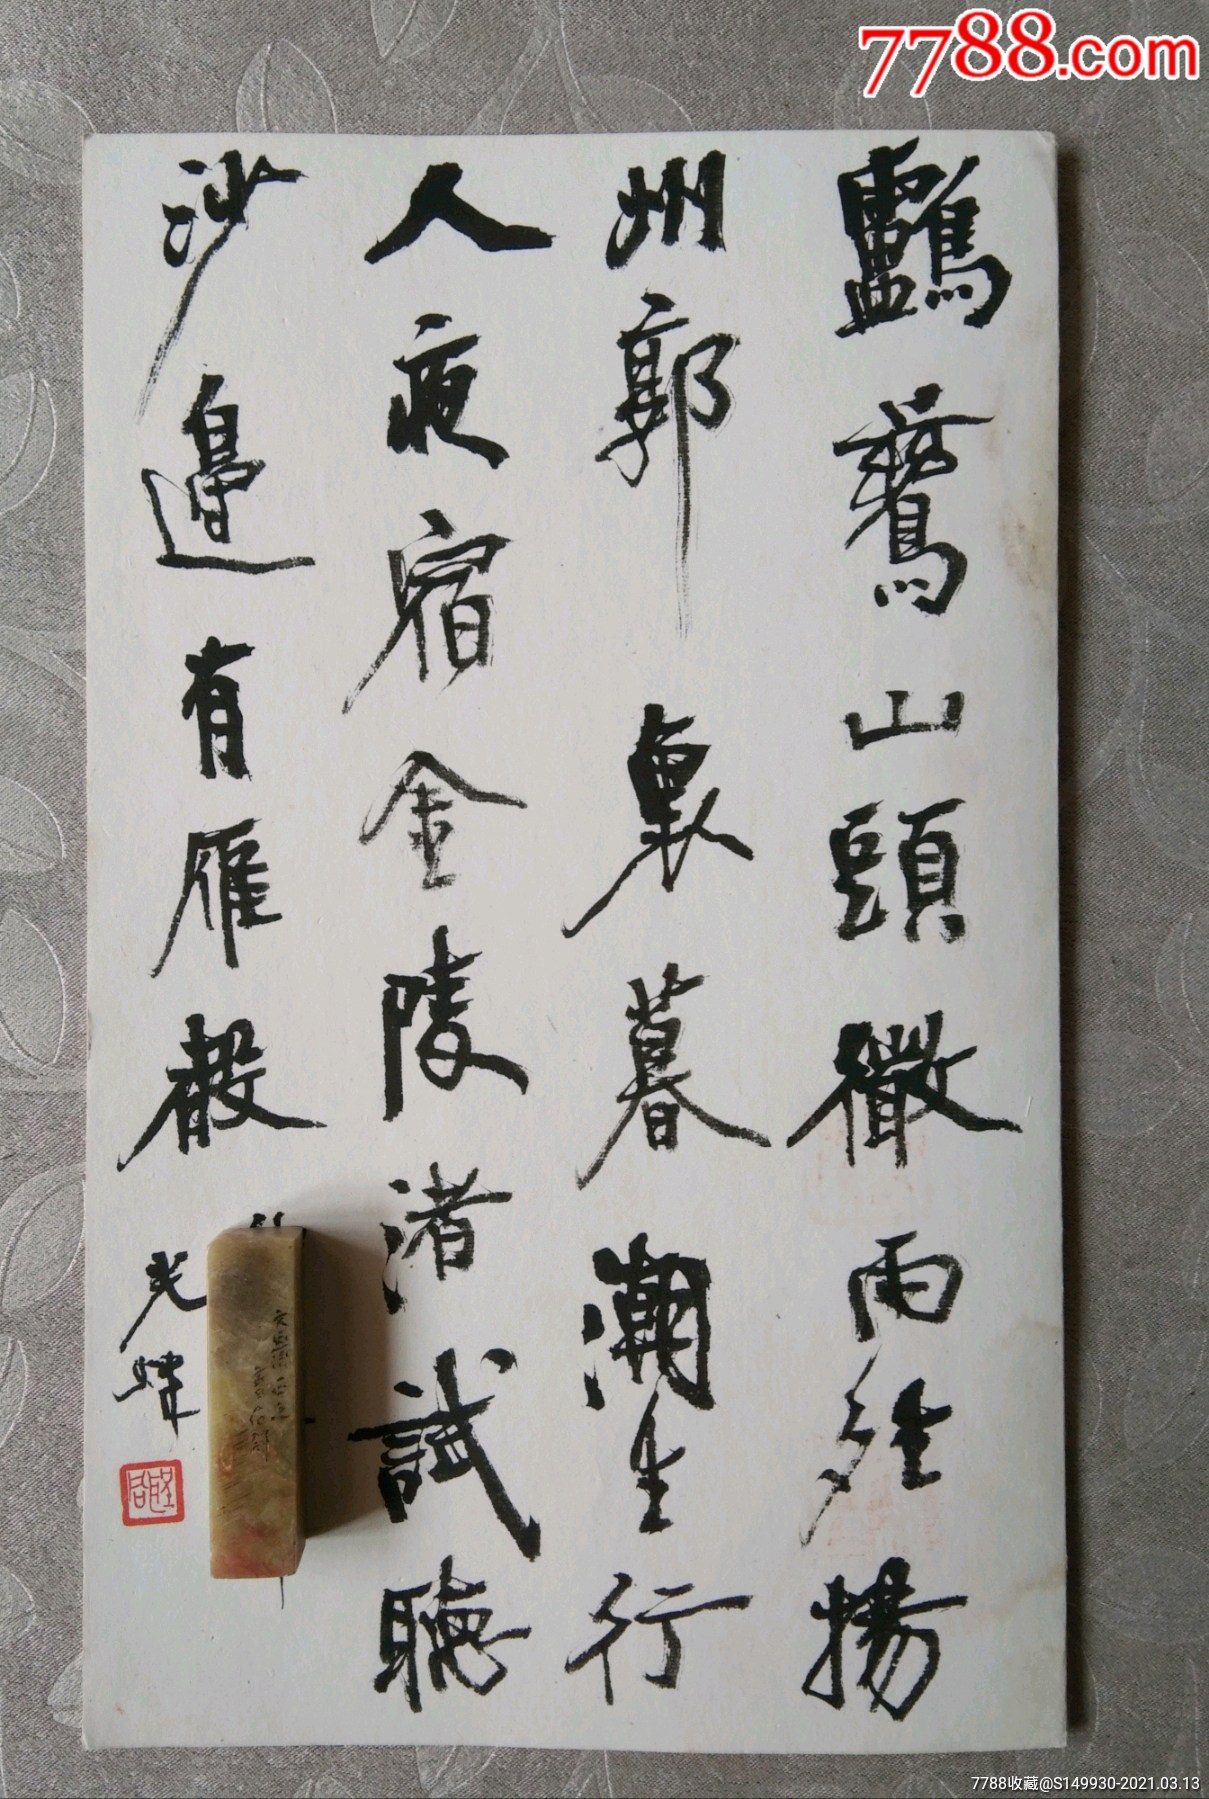 7788.com
鸕鶿山頭微雨揚
州郭裏暮潮生行
人夜宿金陵渚試聽
沙邊有雁聲
光煒
7788收藏@S149930-2021.03.13